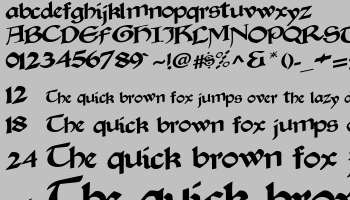 abcdefghijklmnopqrstuvwxyz
ABCDEFGHIJKLMNOPQRST
0123456789 ~!@#$%^&*()-_+=
12 The quick brown fox jumps over the lazy
18 The quick brown fox jumps
24 The quick brown fox
The quick